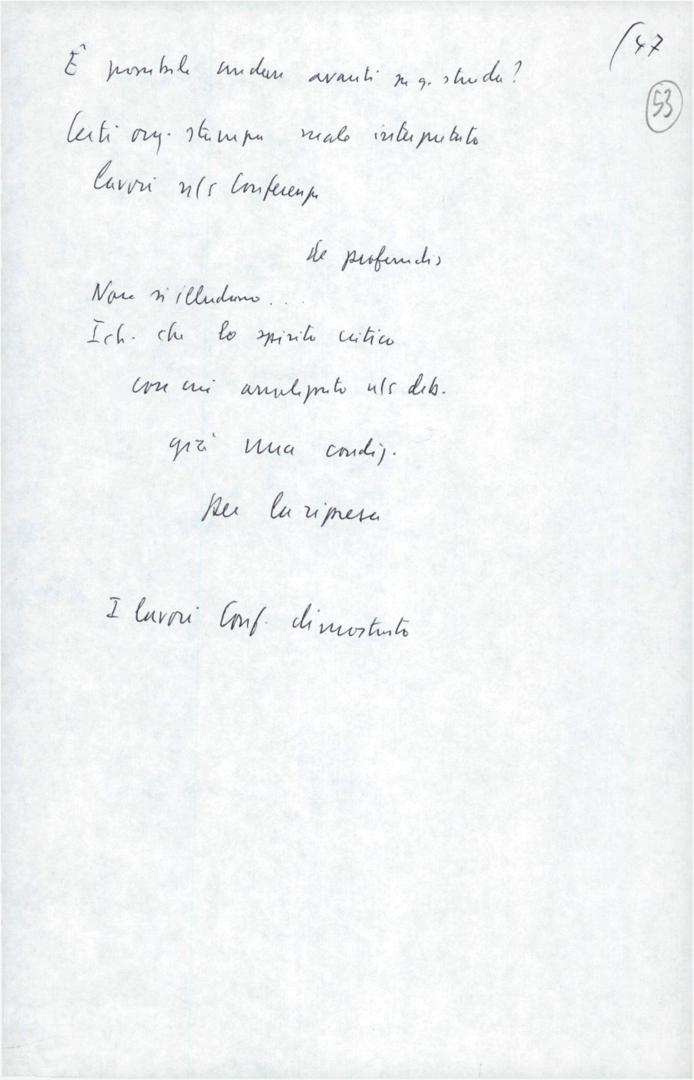 47
53
È possibile andare avanti su q. strada?
Certi org. stampa male interpretato
lavori n/s Conferenza
De profundis
Non si illudano...
che lo spirito critico
con cui n/s deb.
già una condiz.
per la ripresa
I lavori Conf. dimostrato